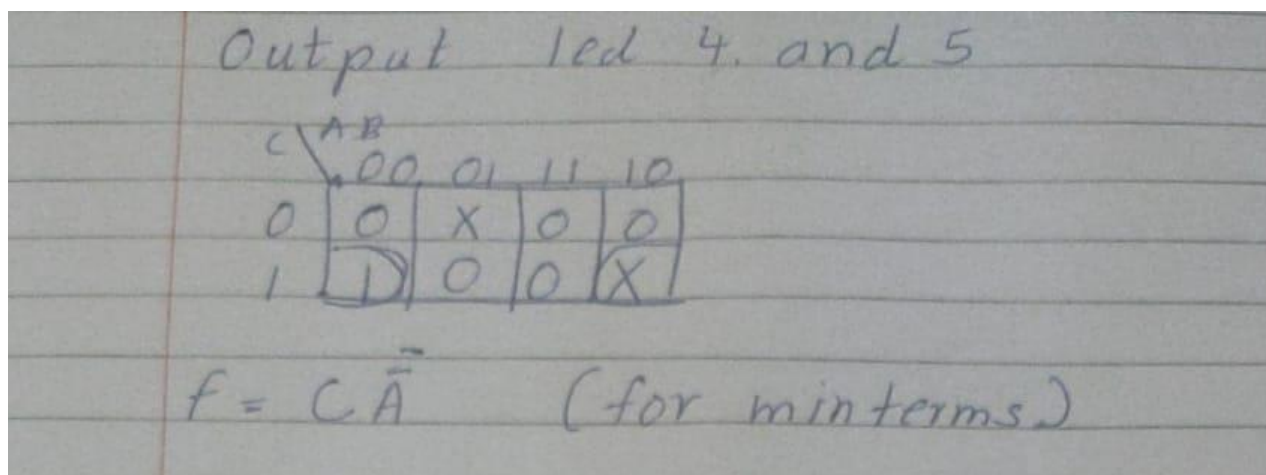 Output led 4. and 5
C \ AB
00 01 11 10
0 0 X 0 0
1 1 0 0 X
f = C Ā (for minterms)